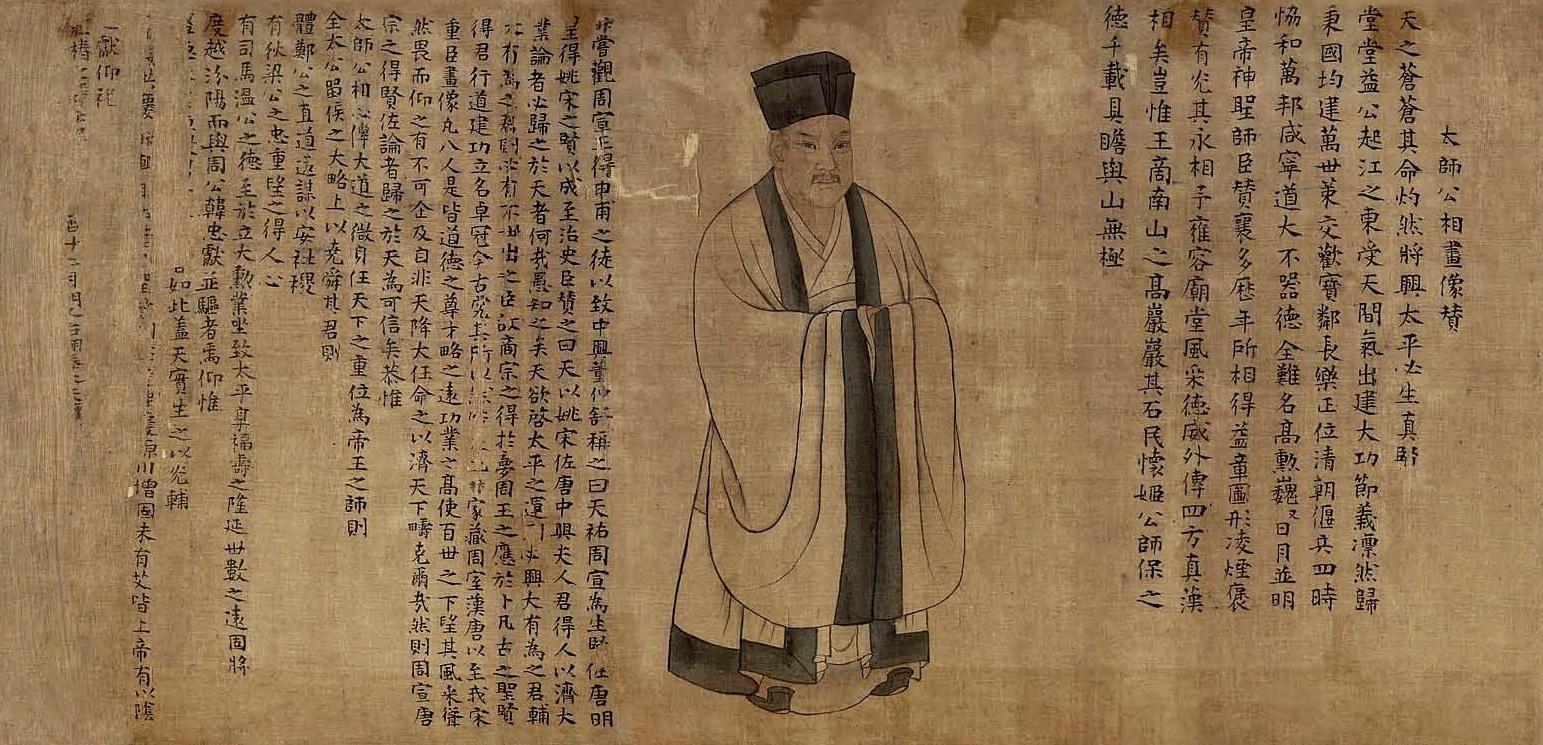 太師公相畫像贊
天之蒼蒼其命灼然將興太平必生真賢
堂堂益公起江之東受天間氣出建大功節義凛然歸
秉國均建萬世策交歡寶鄰長樂正位清朝偃兵四時
恊和萬邦咸寧道大不器德全難名髙勲巍巍日月並明
皇帝神聖師臣賛襄多歷年所相得益章圖形凌煙褒
賛有光其永相予雍容廟堂風采德威外傳四方真漢
相矣豈惟王商南山之髙巖巖其石民懷姬公師保之
德千載具瞻與山無極
嘗觀周宣王得申甫之徒以致中興董仲舒稱之曰天祐周宣為生賢佐唐明
皇得姚宋之賢以成至治史臣賛之曰天以姚宋佐唐中興夫人君得人以濟大
業論者必歸之於天者何哉愚知之矣天欲啓太平之運必興大有為之君輔
大有為之君則必有不世出之臣故商宗之得於夢周王之應於卜凡古之聖賢
得君行道建功立名卓冠今古究其所以家藏周室漢唐以至我宋
重臣畫像凡八人是皆道德之尊才略之遠功業之髙使百世之下望其風采聳
然畏而仰之有不可企及自非天降大任命之以濟天下疇克爾哉然則周宣唐
宗之得賢佐論者歸之於天為可信矣恭惟
太師公相心傳大道之微身任天下之重位為帝王之師則
全太公留侯之大略上以堯舜其君則
體鄭公之直道遠謀以安社稷
有狄梁公之忠重望之得人心
有司馬温公之德至於立大勲業坐致太平享福壽之隆延世數之遠固將
度越汾陽而與周公韓忠獻並驅者焉仰惟
如此蓋天實生之以光輔
川增固未有艾皆上帝有以隲
獻仰祝
椿